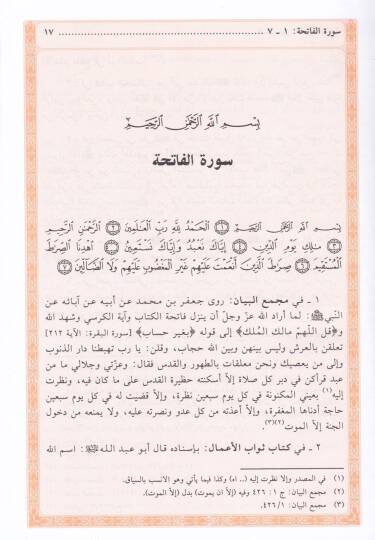 سورة الفاتحة: ١ ـ ٧ ........................................................ ١٧
بِسْمِ اللَّهِ الرَّحْمَٰنِ الرَّحِيمِ
سورة الفاتحة
بِسْمِ اللَّهِ الرَّحْمَٰنِ الرَّحِيمِ ١ الْحَمْدُ لِلَّهِ رَبِّ الْعَالَمِينَ ٢ الرَّحْمَٰنِ الرَّحِيمِ
٣ مَالِكِ يَوْمِ الدِّينِ ٤ إِيَّاكَ نَعْبُدُ وَإِيَّاكَ نَسْتَعِينُ ٥ اهْدِنَا الصِّرَاطَ
الْمُسْتَقِيمَ ٦ صِرَاطَ الَّذِينَ أَنْعَمْتَ عَلَيْهِمْ غَيْرِ الْمَغْضُوبِ عَلَيْهِمْ وَلَا الضَّالِّينَ ٧
١ ـ في مجمع البيان: روى جعفر بن محمد عن أبيه عن آبائه عن
النبي ﷺ: لما أراد الله عزّ وجلّ أن ينزل فاتحة الكتاب وآية الكرسي وشهد الله
و﴿قل اللّهمّ مالك الملك﴾ إلى قوله ﴿بغير حساب﴾ [سورة البقرة: الآية ٢١٢]
تعلقن بالعرش وليس بينهن وبين الله حجاب، وقلن: يا رب تهبطنا دار الذنوب
وإلى من يعصيك ونحن معلقات بالطهور والقدس فقال: وعزّتي وجلالي ما من
عبد قرأكن في دبر كل صلاة إلاّ أسكنته حظيرة القدس على ما كان فيه، ونظرت
إليه(١) بعيني المكنونة في كل يوم سبعين نظرة، وإلاّ قضيت له في كل يوم سبعين
حاجة أدناها المغفرة، وإلاّ أعذته من كل عدو ونصرته عليه، ولا يمنعه من دخول
الجنة إلاّ الموت(٢)(٣).
٢ ـ في كتاب ثواب الأعمال: بإسناده قال أبو عبد الله ﷺ: اسم الله
(١) في المصدر وإلا نظرت إليه (.. اه) وكذا فيما يأتي وهو الانسب بالسياق.
(٢) مجمع البيان: ج ١: ٤٢٦ وفيه (إلاّ ان يموت) بدل (إلاّ الموت).
(٣) مجمع البيان: ٤٢٦/١.